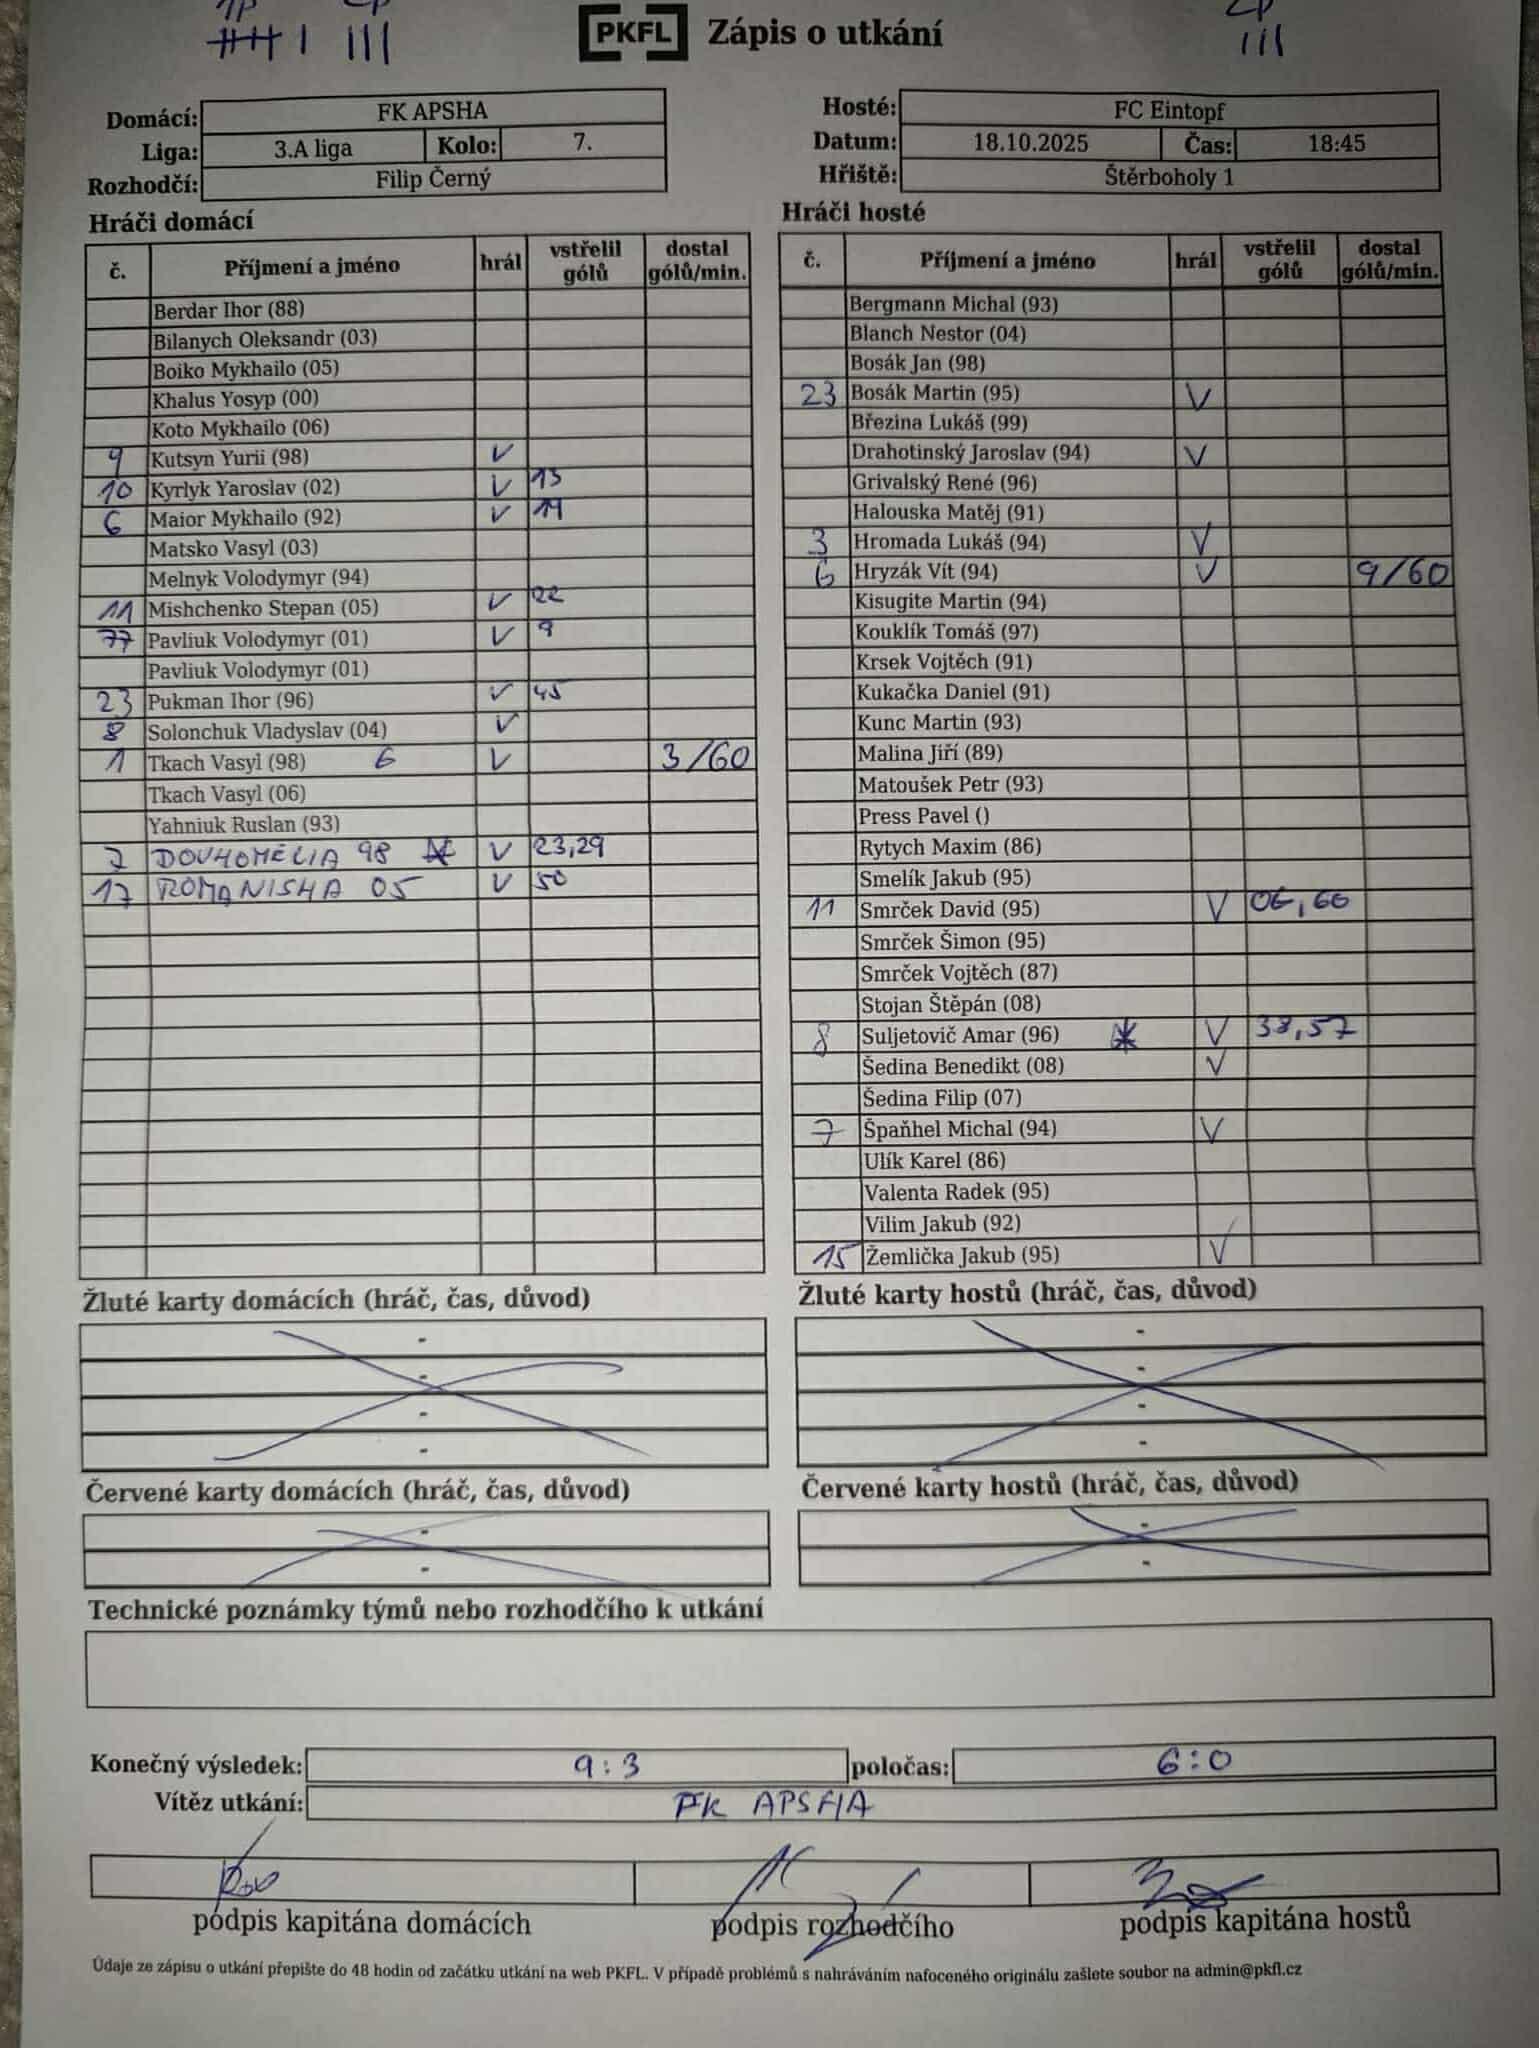 1P 2P 2P
PKFL Zápis o utkání
Domácí: FK APSHA
Liga: 3.A liga Kolo: 7.
Rozhodčí: Filip Černý
Hosté: FC Eintopf
Datum: 18.10.2025 Čas: 18:45
Hřiště: Štěrboholy 1
Hráči domácí
č. Příjmení a jméno hrál vstřelil gólů dostal gólů/min.
Berdar Ihor (88)
Bilanych Oleksandr (03)
Boiko Mykhailo (05)
Khalus Yosyp (00)
Koto Mykhailo (06)
9 Kutsyn Yurii (98) V
10 Kyrlyk Yaroslav (02) V 13
6 Maior Mykhailo (92) V
Matsko Vasyl (03)
Melnyk Volodymyr (94)
11 Mishchenko Stepan (05) V 22
77 Pavliuk Volodymyr (01) V 9
Pavliuk Volodymyr (01)
23 Pukman Ihor (96) V 45
8 Solonchuk Vladyslav (04) V
1 Tkach Vasyl (98) G V 3/60
Tkach Vasyl (06)
Yahniuk Ruslan (93)
7 DOVHOMELIA 98 V 23,29
17 ROMANISHA 05 V 50
Hráči hosté
č. Příjmení a jméno hrál vstřelil gólů dostal gólů/min.
Bergmann Michal (93)
Blanch Nestor (04)
Bosák Jan (98)
23 Bosák Martin (95) V
Březina Lukáš (99)
Drahotinský Jaroslav (94) V
Grivalský René (96)
Halouska Matěj (91)
3 Hromada Lukáš (94) V
6 Hryzák Vít (94) V 9/60
Kisugite Martin (94)
Kouklík Tomáš (97)
Krsek Vojtěch (91)
Kukačka Daniel (91)
Kunc Martin (93)
Malina Jiří (89)
Matoušek Petr (93)
Press Pavel ()
Rytych Maxim (86)
Smelík Jakub (95)
11 Smrček David (95) V
Smrček Šimon (95)
Smrček Vojtěch (87)
Stojan Štěpán (08)
8 Suljetovič Amar (96) V 38,57
Šedina Benedikt (08) V
Šedina Filip (07)
7 Špaňhel Michal (94) V
Ulík Karel (86)
Valenta Radek (95)
Vilim Jakub (92)
15 Žemlička Jakub (95) V
Žluté karty domácích (hráč, čas, důvod)
-
-
-
-
Žluté karty hostů (hráč, čas, důvod)
-
-
-
-
Červené karty domácích (hráč, čas, důvod)
-
-
Červené karty hostů (hráč, čas, důvod)
-
-
Technické poznámky týmů nebo rozhodčího k utkání
Konečný výsledek: 9:3 poločas: 6:0
Vítěz utkání: FK APSHA
podpis kapitána domácích podpis rozhodčího podpis kapitána hostů
Údaje ze zápisu o utkání přepište do 48 hodin od začátku utkání na web PKFL. V případě problémů s nahráváním nafoceného originálu zašlete soubor na admin@pkfl.cz